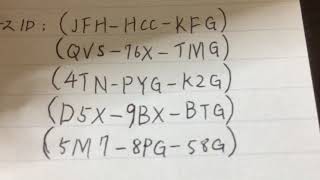 スID: (JFH-HCC-KFG)
(QVS-76X-TMG)
(4TN-PYG-K2G)
(D5X-9BX-BTG)
(5M7-8PG-58G)